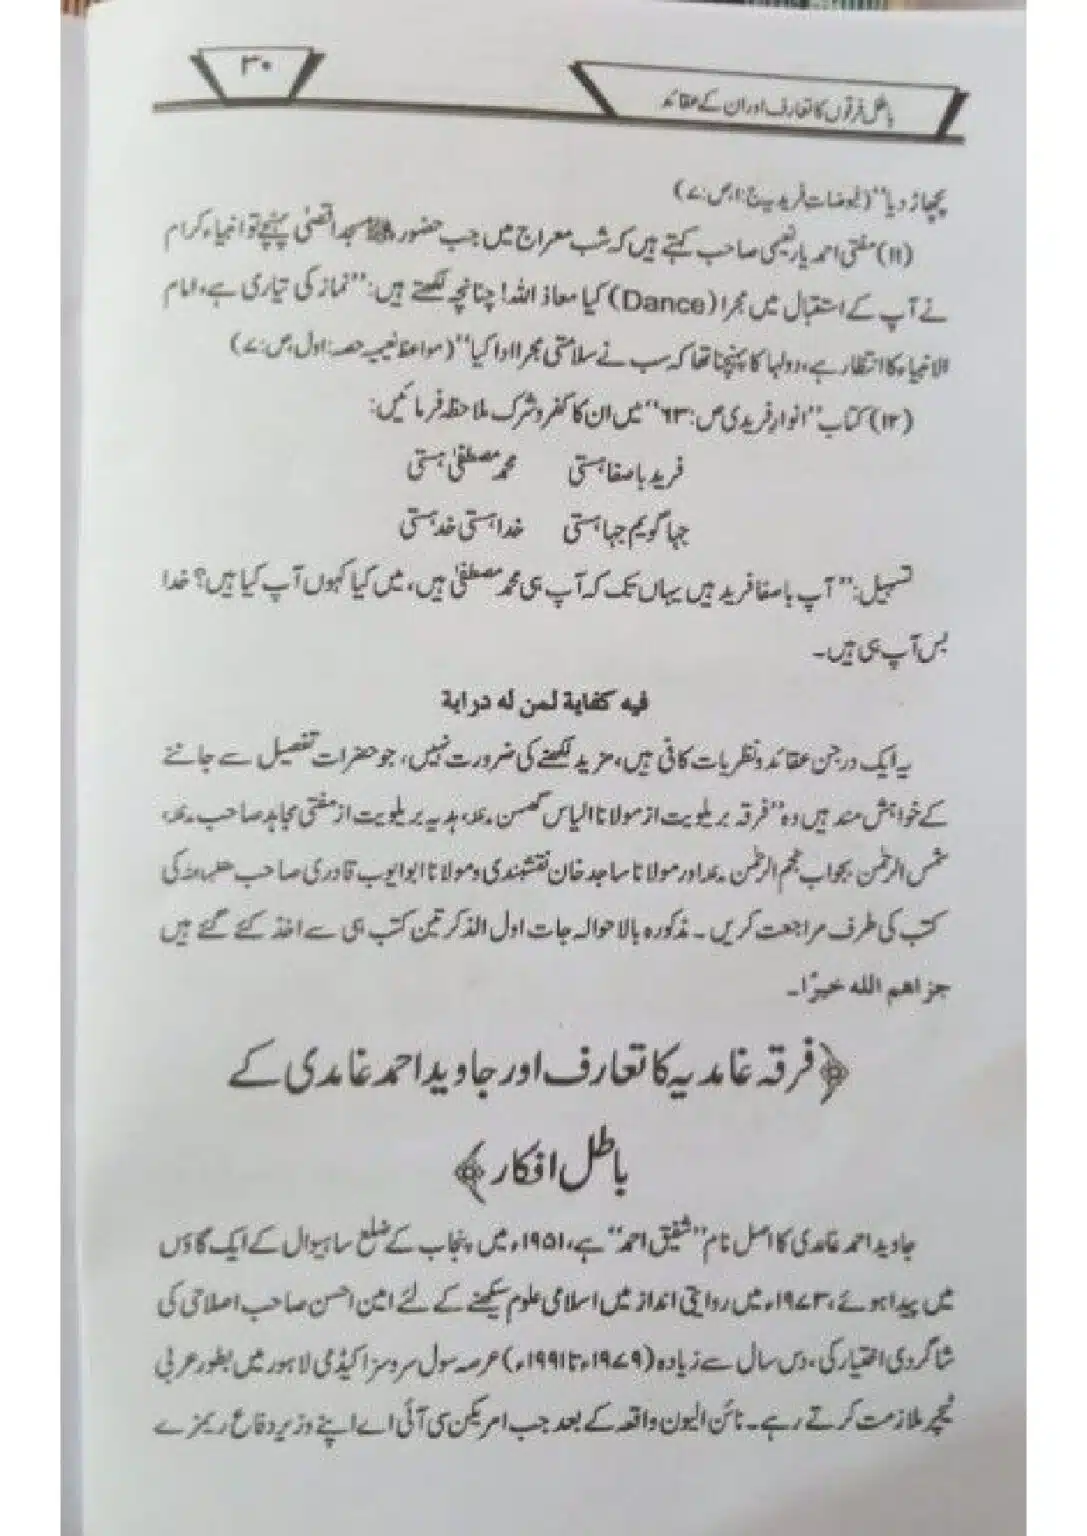 باطل فرقوں کا تعارف اور ان کے عقائد
۳۰
پچھاڑ دیا" (فیوضات فریدیہ ج:۱،ص:۷)
(۱۱) مفتی احمد یار نعیمی صاحب کہتے ہیں کہ شب معراج میں جب حضور ﷺ مسجد اقصیٰ پہنچے تو انبیاء کرام
نے آپ کے استقبال میں مجرا (Dance) کیا معاذ اللہ! چنانچہ لکھتے ہیں: "نماز کی تیاری ہے، امام
الانبیاء کا انتظار ہے، دولہا کا پہنچنا تھا کہ سب نے سلامتی مجرا ادا کیا" (مواعظ نعیمیہ حصہ: اول، ص:۷)
(۱۲) کتاب "انوار فریدی ص:۶۳" میں ان کا کفر و شرک ملاحظہ فرمائیں:
فرید باصفا ہستی محمد مصطفیٰ ہستی
جہا گویم جہا ہستی خدا ہستی خد ہستی
تسہیل: "آپ باصفا فرید ہیں یہاں تک کہ آپ ہی محمد مصطفیٰ ہیں، میں کیا کہوں آپ کیا ہیں؟ خدا
بس آپ ہی ہیں۔
فیه كفاية لمن له دراية
یہ ایک درجن عقائد و نظریات کافی ہیں، مزید لکھنے کی ضرورت نہیں، جو حضرات تفصیل سے جاننے
کے خواہش مند ہیں وہ "فرقہ بریلویت از مولانا الیاس گھمن مدظلہ، ہدیہ بریلویت از مفتی مجاہد صاحب مدظلہ،
شمس الرحمٰن بجواب نجم الرحمٰن مدظلہ اور مولانا ساجد خان نقشبندی و مولانا ابو ایوب قادری صاحب حفظہما اللہ کی
کتب کی طرف مراجعت کریں۔ مذکورہ بالا حوالہ جات اول الذکر تین کتب ہی سے اخذ کئے گئے ہیں
جزاهم الله خيرًا۔
﴿فرقہ غامدیہ کا تعارف اور جاوید احمد غامدی کے
باطل افکار﴾
جاوید احمد غامدی کا اصل نام "شفیق احمد" ہے، ۱۹۵۱ء میں پنجاب کے ضلع ساہیوال کے ایک گاؤں
میں پیدا ہوئے، ۱۹۷۳ء میں روایتی انداز میں اسلامی علوم سیکھنے کے لئے امین احسن صاحب اصلاحی کی
شاگردی اختیار کی، دس سال سے زیادہ (۱۹۷۹ء تا ۱۹۹۱ء) عرصہ سول سروسز اکیڈمی لاہور میں بطور عربی
ٹیچر ملازمت کرتے رہے۔ نائن الیون واقعہ کے بعد جب امریکن سی آئی اے اپنے وزیر دفاع ریمزے